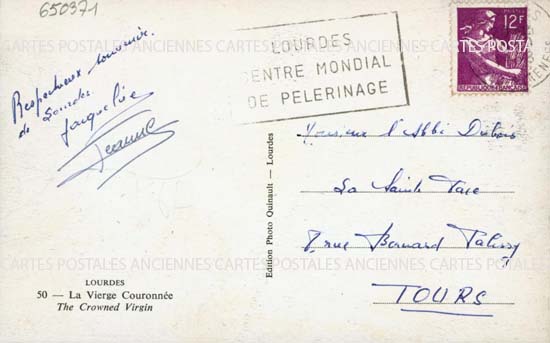 650371
LOURDES
CENTRE MONDIAL
DE PELERINAGE
12F
REPUBLIQUE FRANÇAISE
Respectueux souvenir
de Lourdes
Jacqueline
Jeanne
Monsieur l'Abbé
La Sainte Face
rue Bernard Palissy
TOURS
Edition Photo Quinault - Lourdes
LOURDES
50 — La Vierge Couronnée
The Crowned Virgin
CARTES POSTALES ANCIENNES CARTES POSTALES ANCIENNES CARTES POSTALES
CARTES POSTALES ANCIENNES CARTES POSTALES ANCIENNES CARTES POSTALES